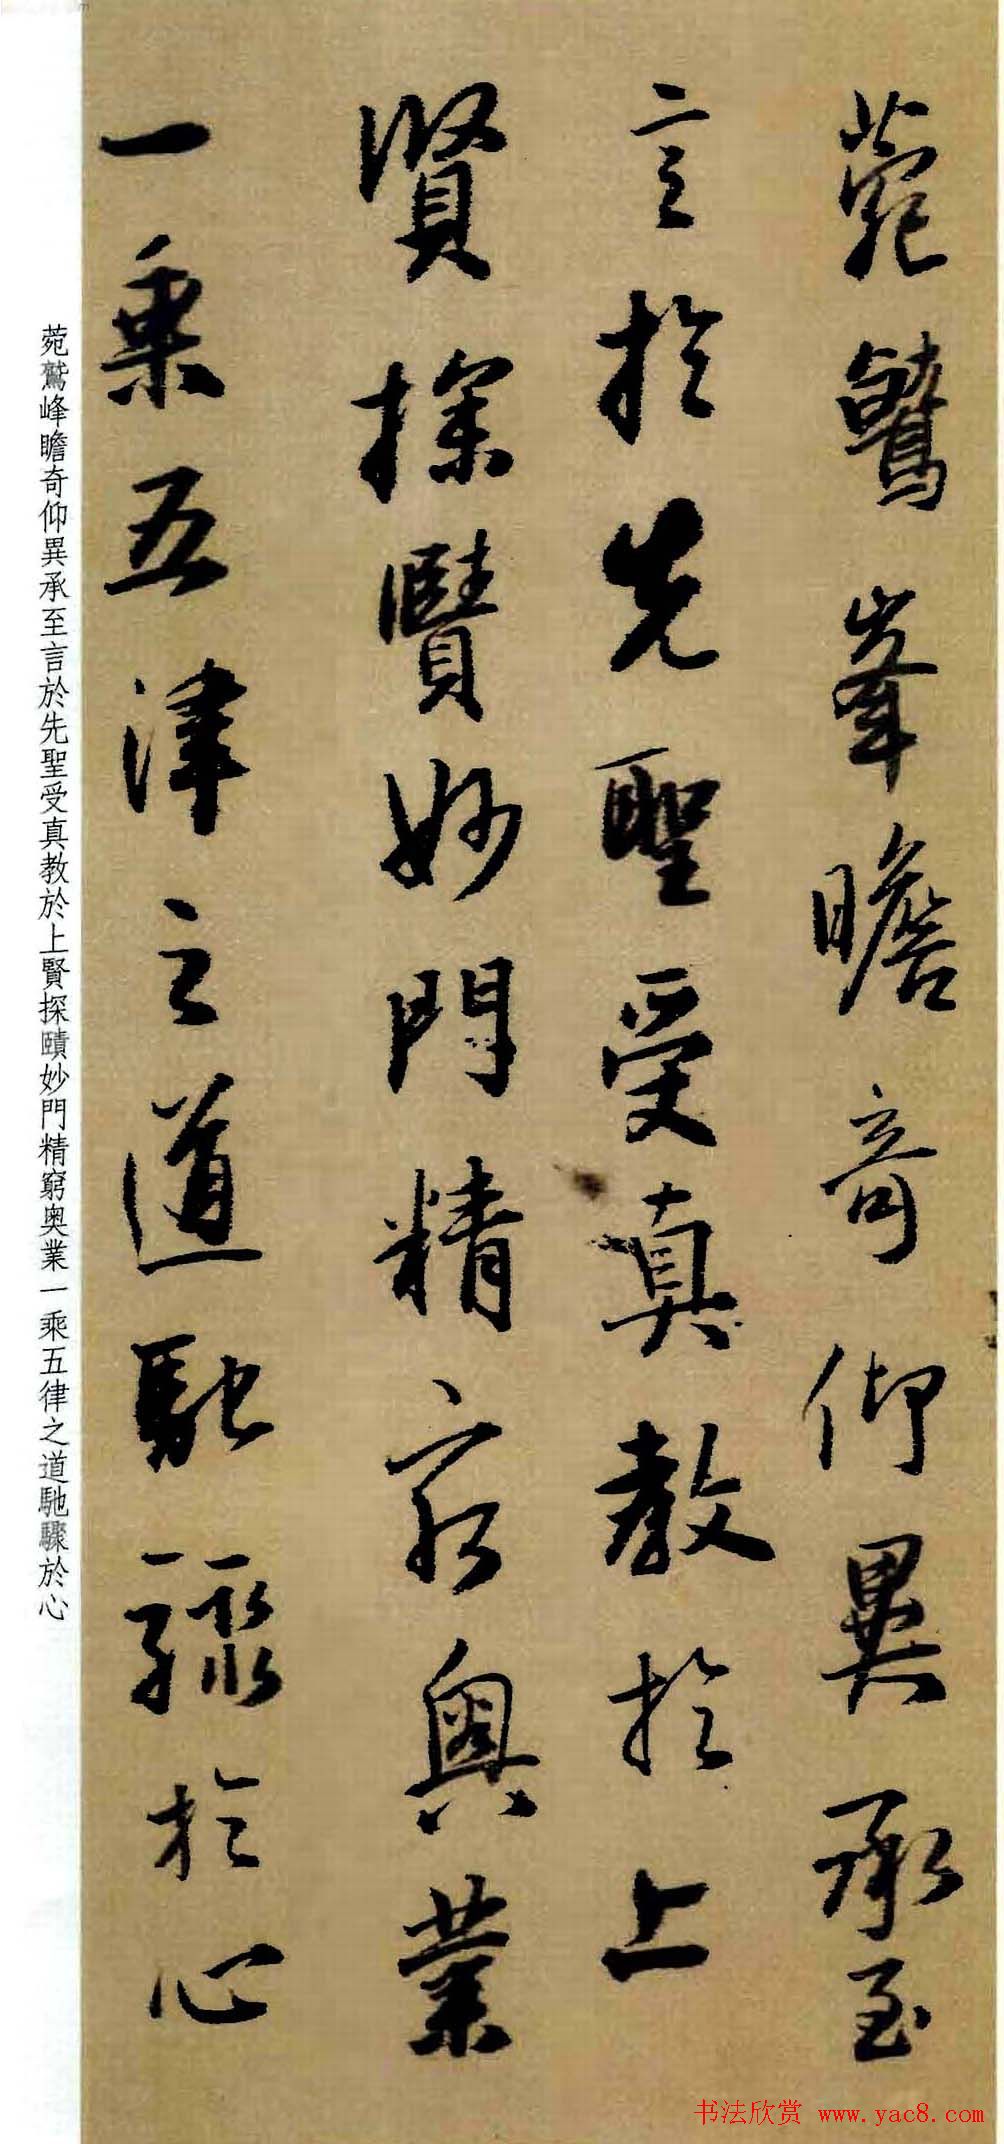 菀鷲峯瞻奇仰異承至
言於先聖受真教於上
賢探賾妙門精窮奧業
一乘五律之道馳驟於心
菀鷲峰瞻奇仰異承至言於先聖受真教於上賢探賾妙門精窮奧業一乘五律之道馳驟於心
书法欣赏 www.yac8.com